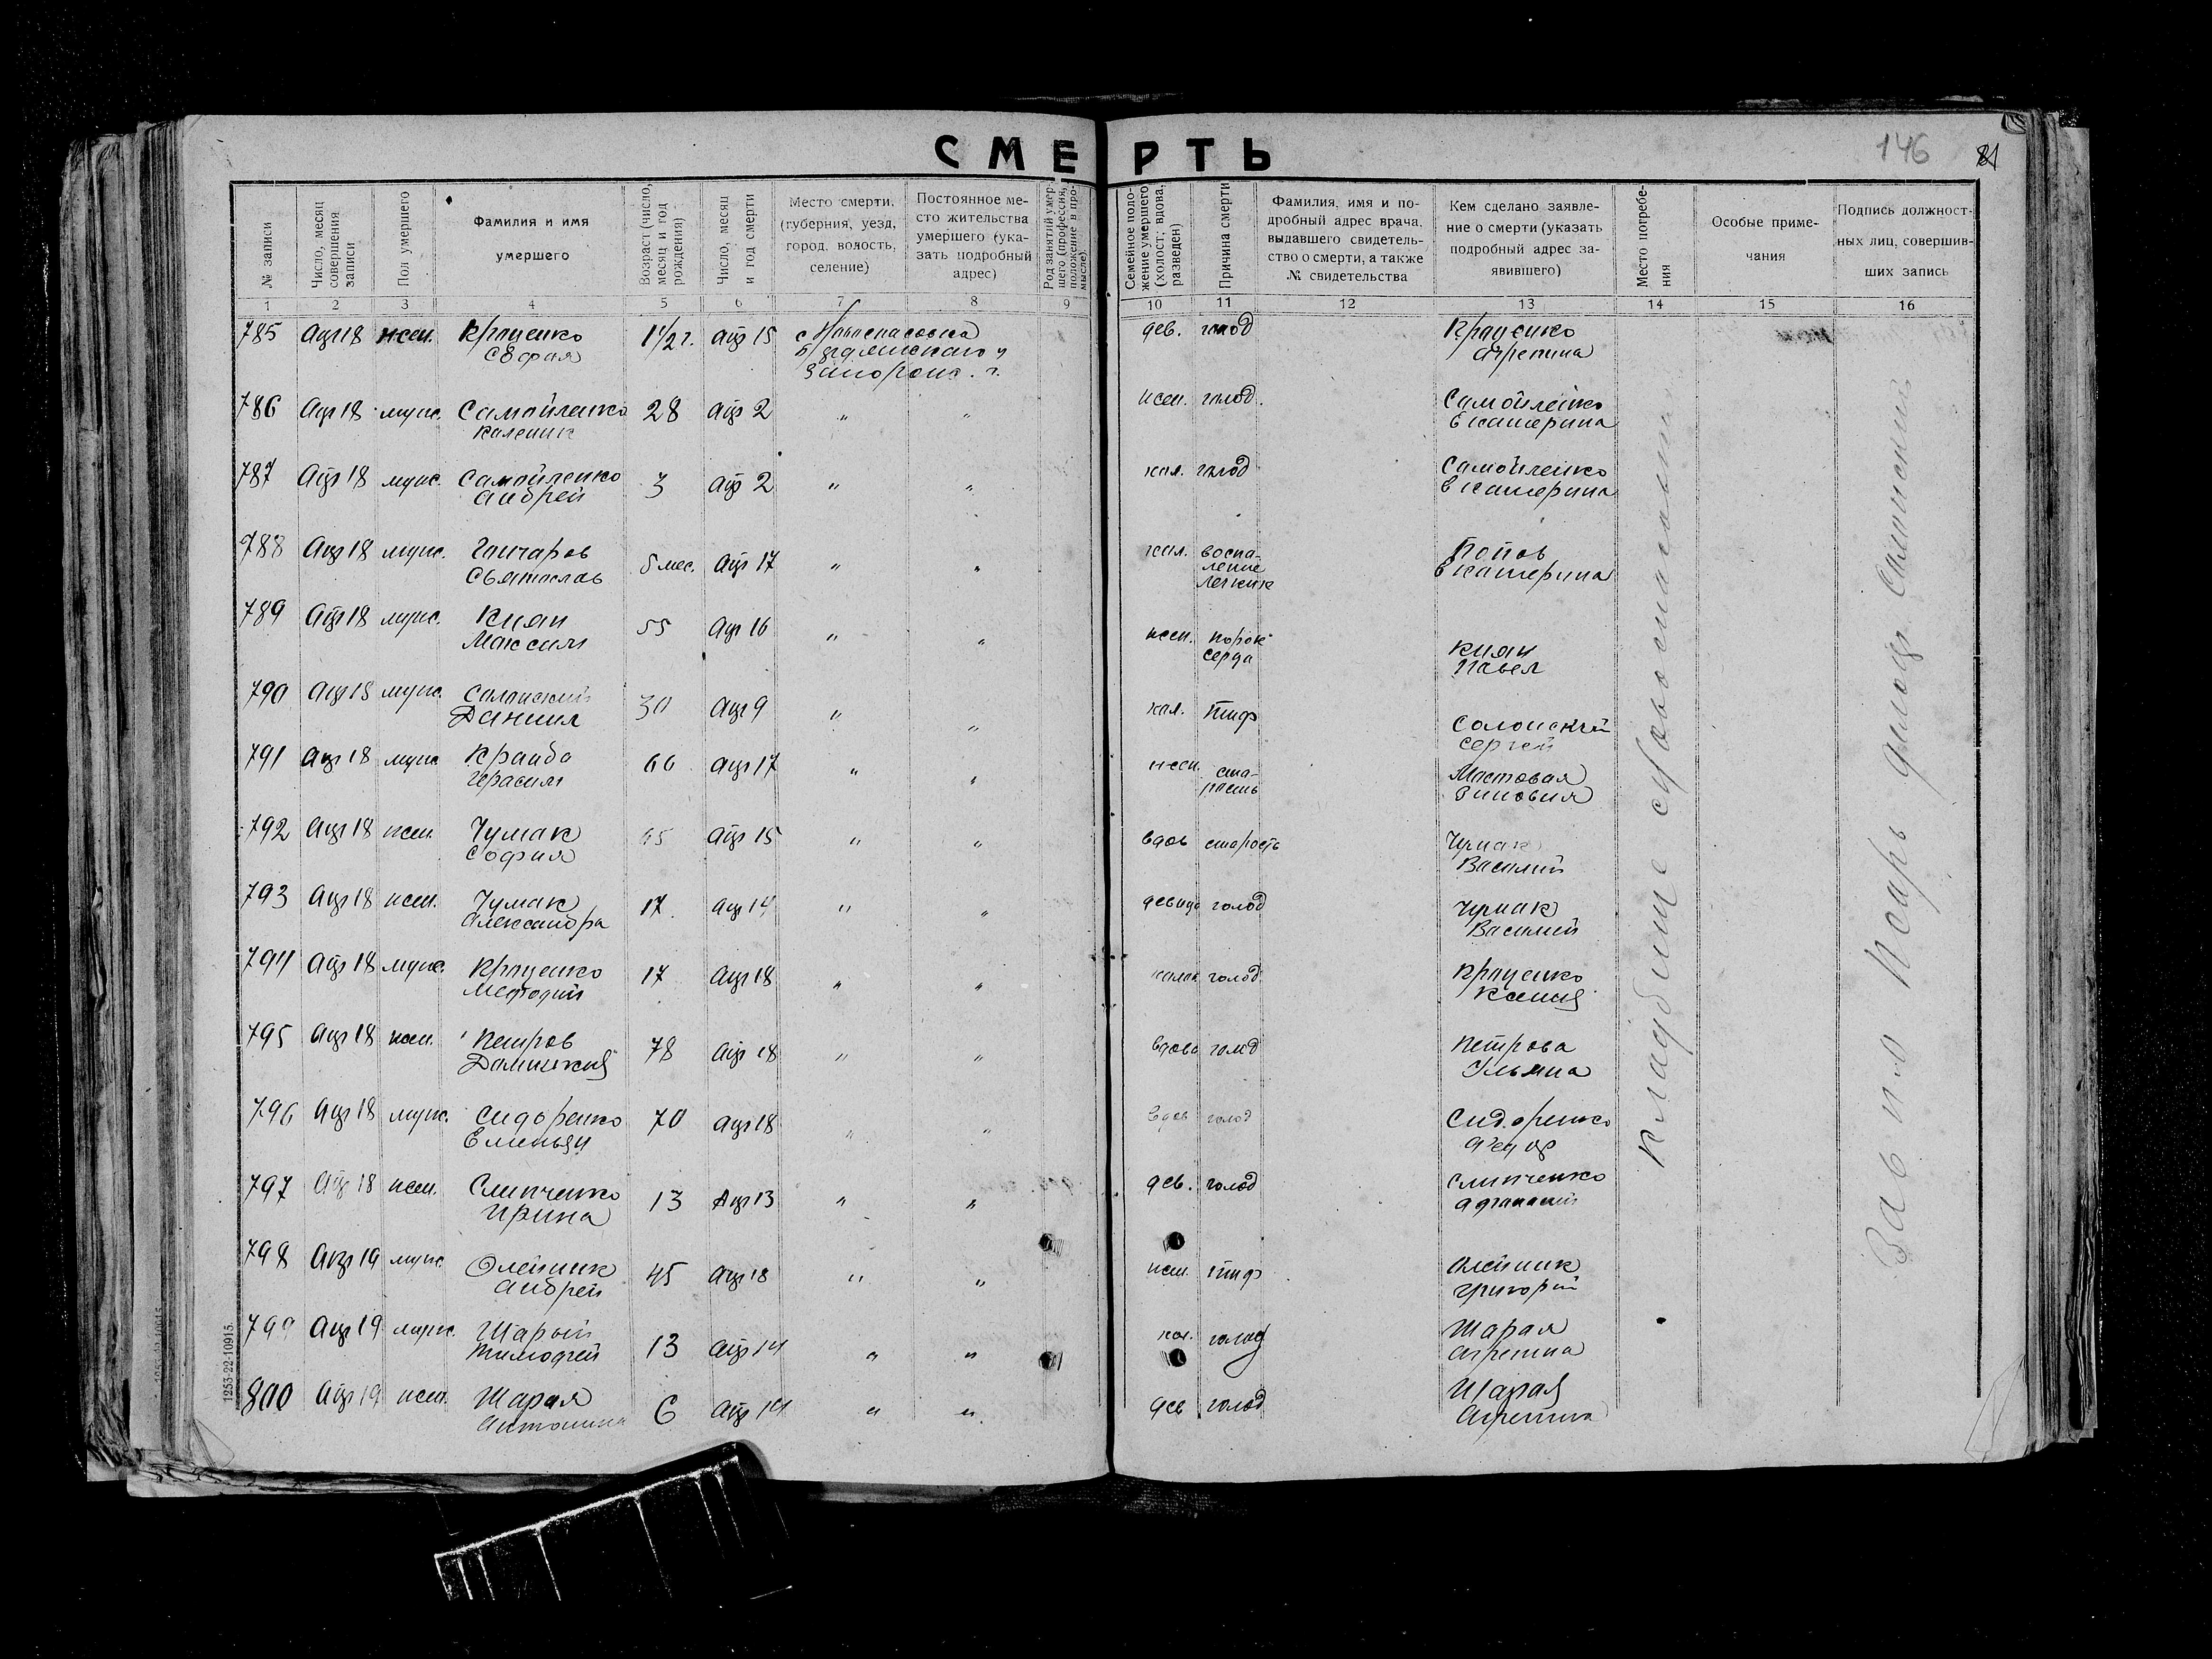 СМЕРТЬ
146
81
№ записи
Число, месяц совершения записи
Пол умершего
Фамилия и имя умершего
Возраст (число, месяц и год рождения)
Число, месяц и год смерти
Место смерти, (губерния, уезд, город, волость, селение)
Постоянное место жительства умершего (указать подробный адрес)
Род занятий умершего (профессия, положение в промысле)
Семейное положение умершего (холост; вдова, разведен)
Причина смерти
Фамилия, имя и подробный адрес врача, выдавшего свидетельство о смерти, а также № свидетельства
Кем сделано заявление о смерти (указать подробный адрес заявившего)
Место погребения
Особые примечания
Подпись должностных лиц, совершивших запись
1 2 3 4 5 6 7 8 9 10 11 12 13 14 15 16
785 Апр 18 жен. Кращенко 1 1/2 г. апр 15 с Новоспасовка дев. голод Кращенко
София Агрепина
786 Апр 18 муж. Самойленко 28 апр 2 " " жен. голод. Самойленко
Каленик Екатерина
787 Апр 18 муж. Самойленко 3 апр 2 " " хол. голод Самойленко
Андрей Екатерина
788 Апр 18 муж. Гончаров 5 мес. апр 17 " " хол. воспа- Попов
Святослав ление Екатерина
легких
789 Апр 18 муж. Киян 55 Апр 16 " " жен. порок Киян
Максим серца Павел
790 Апр 18 муж. Солонский 30 Апр 9 " " хол. тиф Солонский
Даниил Сергей
791 Апр 18 муж 66 апр 17 " " жен. ста- Мостовая
Герасим рость Зиновия
792 Апр 18 жен. Чумак 65 апр 15 " " вдов старость Чумак
София Василий
793 Апр 18 жен. Чумак 17 апр 14 " " девица голод Чумак
Александра Василий
794 Апр 18 муж. Кращенко 17 Апр 18 " " холост голод Кращенко
Мефодий Ксения
795 Апр 18 жен. Петров 78 апр 18 " " вдова голод Петрова
Ульяна
796 Апр 18 муж. Сидоренко 70 апр 18 " " вдов голод Сидоренко
Емельян Федор
797 Апр 18 жен. Слипченко 13 Апр 13 " " дев. голод Слипченко
Ирина Афанасий
798 Апр 19 муж Олейник 45 апр 18 " " жен. тиф Олейник
Андрей Григорий
799 Апр 19 муж. Шарый 13 апр 14 " " хол. голод Шарая
Тимофей Агрепина
800 Апр 19 жен. Шарая 6 апр 14 " " дев голод Шарая
Антонина Агрепина
Кладбище с Новоспасовки
1253-22-10915